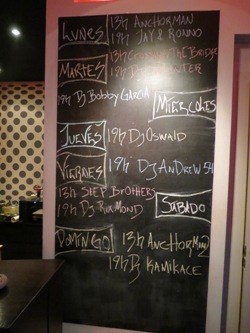 LUNES 13h ANCHORMAN
19h JAY & RONNO
MARTES 13h THE BRIDGE
19h DJ
19h DJ Bobby GARCIA MIERCOLES
JUEVES 19h DJ OSWALD
VIERNES 19h DJ ANDREW 54
13h STEP BROTHERS
19h DJ SABADO
DOMINGO 13h ANCHORMAN 2
19h DJ KAMIKACE